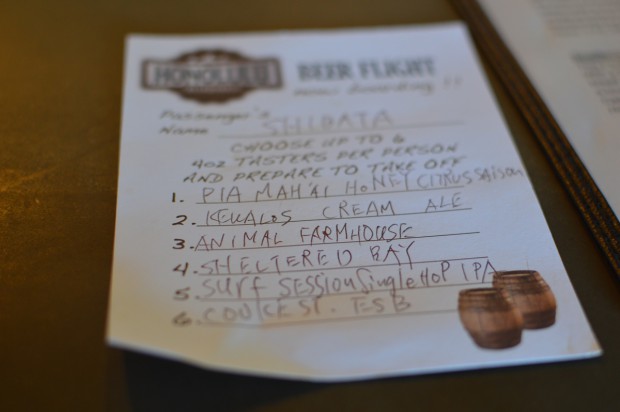 HONOLULU BEER FLIGHT
Now Boarding!!
Passenger's
Name SHIBATA
CHOOSE UP TO 6
4oz TASTERS PER PERSON
AND PREPARE TO TAKE OFF
1. PIA MAH'AI HONEY CITRUS SAISON
2. KEWALOS CREAM ALE
3. ANIMAL FARMHOUSE
4. SHELTERED BAY
5. SURF SESSION Single HOP IPA
6. COOKE ST. ESB